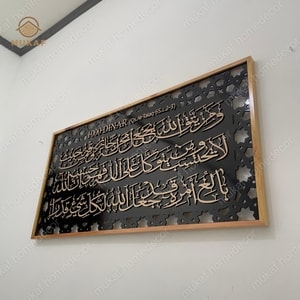 MUKAF
1000 DINAR
وَمَنْ يَتَّقِ اللَّهَ يَجْعَلْ لَهُ مَخْرَجًا وَيَرْزُقْهُ مِنْ حَيْثُ
لَا يَحْتَسِبُ وَمَنْ يَتَوَكَّلْ عَلَى اللَّهِ فَهُوَ حَسْبُهُ إِنَّ اللَّهَ
بَالِغُ أَمْرِهِ قَدْ جَعَلَ اللَّهُ لِكُلِّ شَيْءٍ قَدْرًا